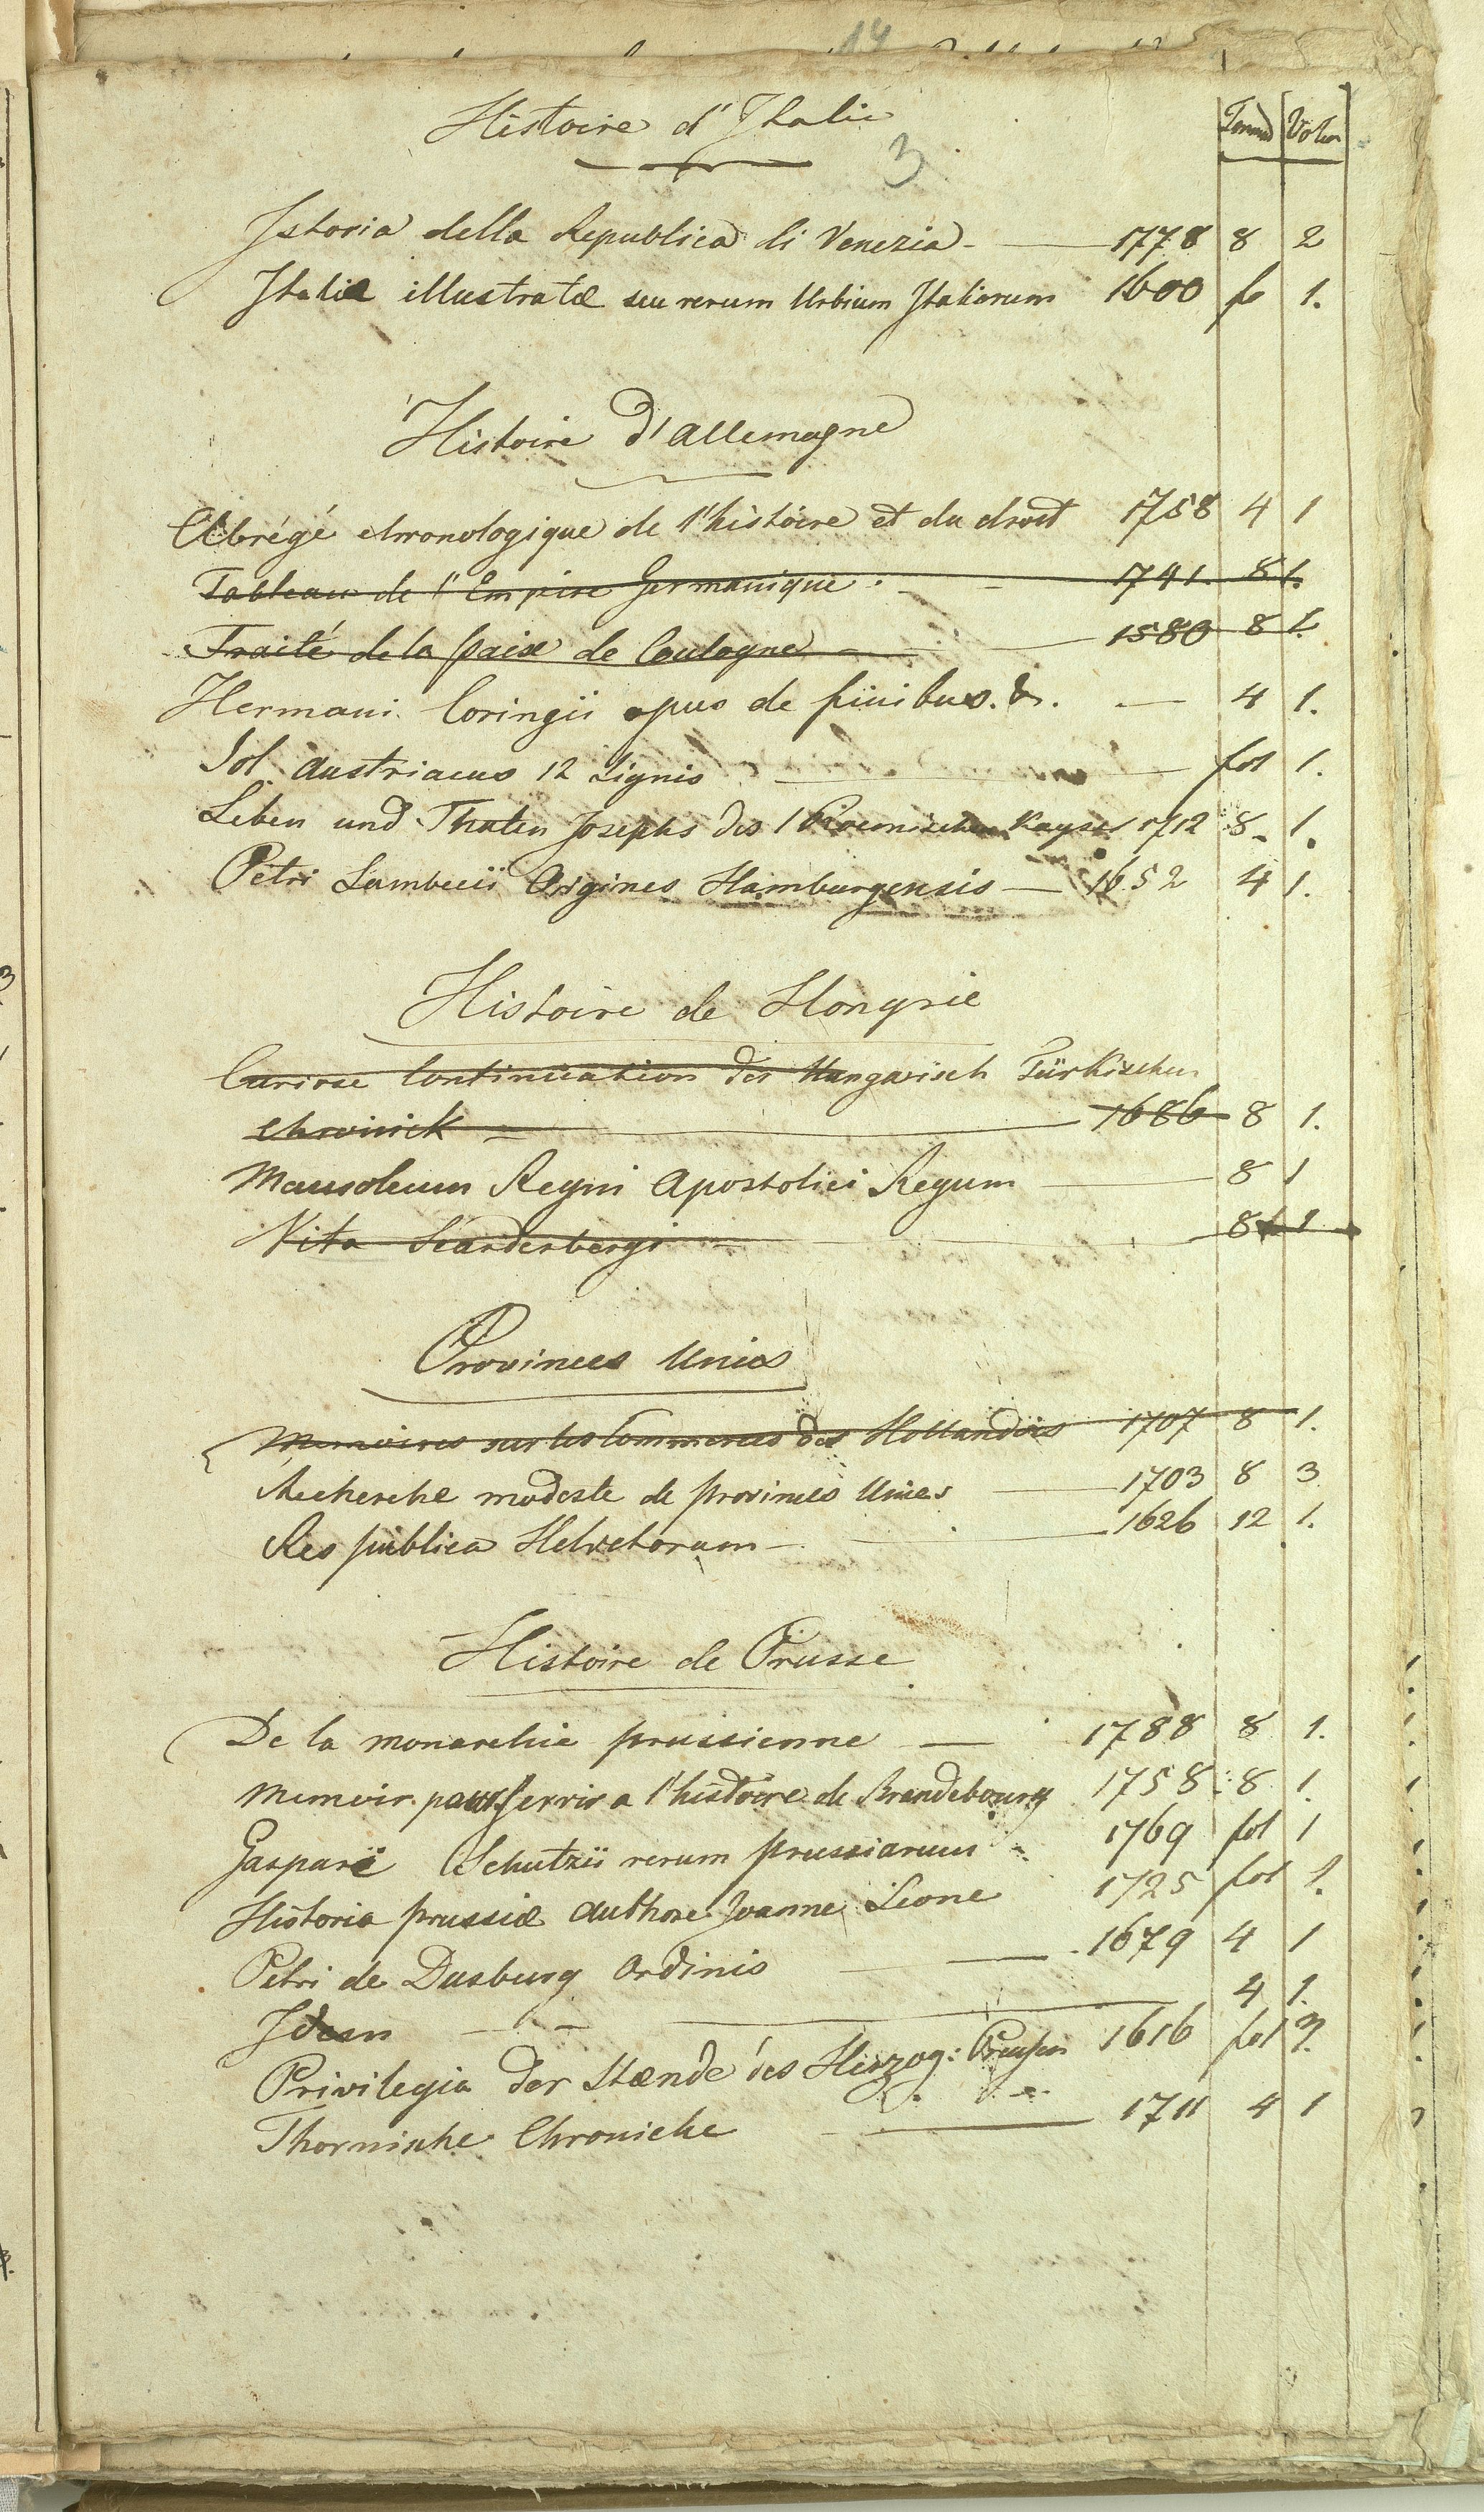 14
Histoire d'Italie
Formd Volum
3
Istoria della Republica di Venezia - 1778 8 2
Italiæ illustratæ seu rerum Urbium Italiarum 1600 fo 1.
Histoire d'Allemagne
Abrégé chronologique de l'histoire et du droit 1758 4 1
Tableau de l'Empire Germanique 1741. 8 1.
Traité de la paix de Coulogne 1580 8 1.
Hermani Coringii opus de finibus. &. — 4 1.
Sol Austriacus 12 Signis — fol 1.
Leben und Thaten Josephs des 1 Roemischen Kayser 1712 8. 1.
Petri Lambecii Origines Hamburgensis — 1652 4 1.
Histoire de Hongrie
Curiose Continuation der Hungarisch Türkischen
Chronick — 1686 8 1.
Mausoleum Regni Apostolici Regum — 8 1
Vita Scanderbergi — 8 1
Provinces Unies
Memoires sur les Commerces des Hollandois 1707 8 1.
Recherche modeste de provinces Unies — 1703 8 3
Res publica Helvetorum — 1626 12 1.
Histoire de Prusse
De la monarchie prussienne — 1788 8 1.
Memoir. pour servir a l'histoire de Brandebourg 1758 8 1.
Gasparii Schutzii rerum prussiarum - 1769 fol 1
Historia prussiæ authore Joanne Leone 1725 fol 1.
Petri de Dusburg Ordinis — 1679 4 1
Idem — 4 1.
Privilegia der Stænde des Herzog: Preusen 1616 fol
Thornishe Chroniche — 1711 4 1